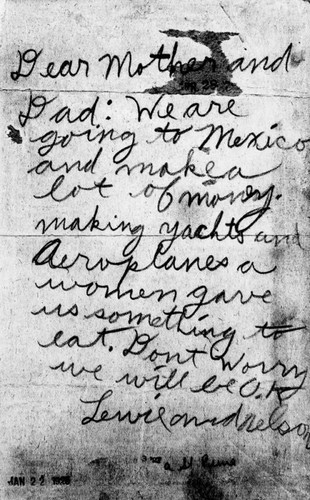 Dear Mother and
Dad: We are
going to Mexico
and make a
lot of money.
making yachts and
Aeroplanes a
women gave
us something to
eat. Dont worry
we will be O.K
Lewis and Nelson
JAN 22 1928